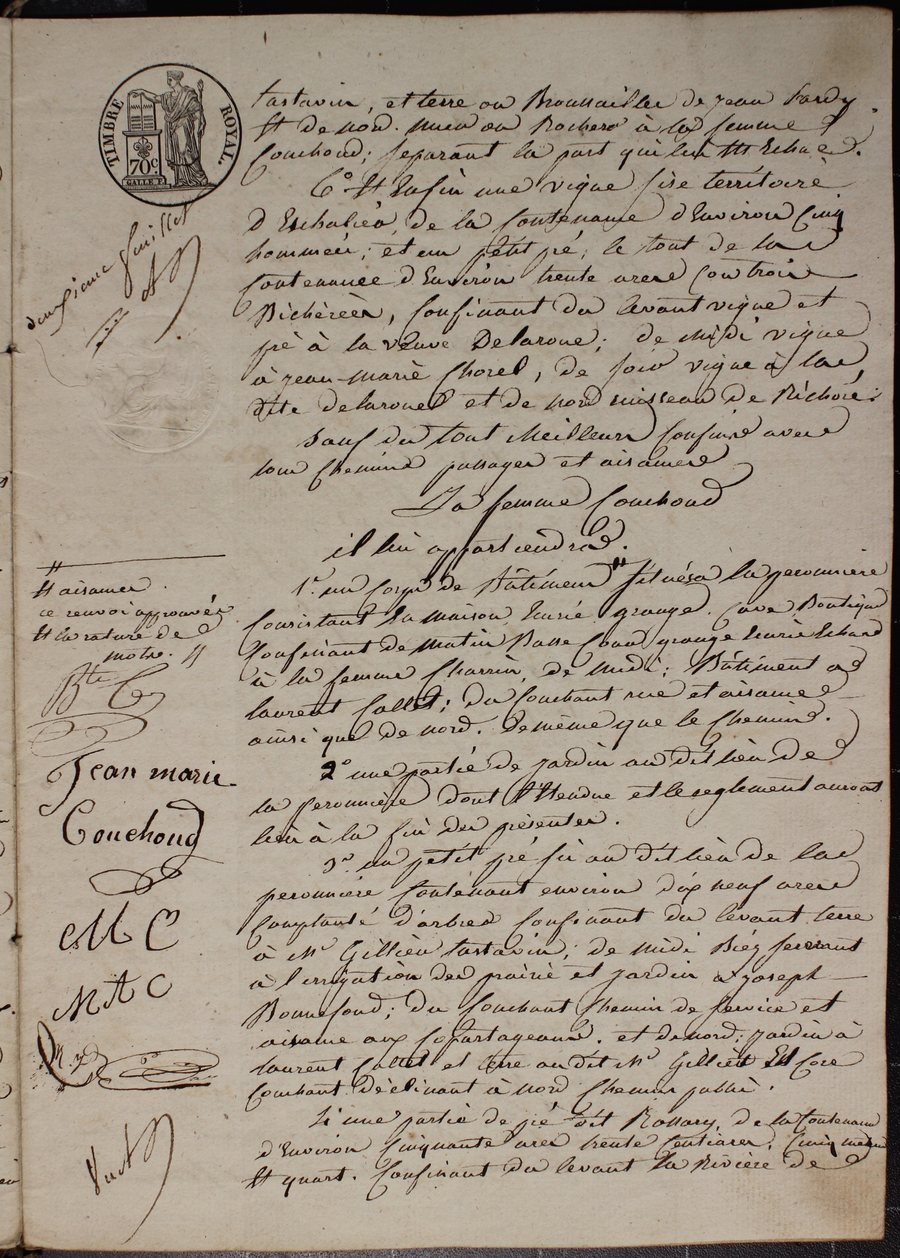 TIMBRE ROYAL
70c.
GALLE F.
deuxième feuillet
tartavin, et terre ou Broussailles de jean
Et de nord. mur ou Rochers à la femme
Couchoud; separant la part qui lui Est Echue.
6° Et Enfin une vigne sise territoire
D'Echaliéa, de la Contenance d'Environ Cinq
hommées; et un petit pré; le tout de la
Contenance d'Environ trente ares Controis
Bichérées, Confinant du levant vigne et
pré à la veuve Delaroue; de Midi vigne
à jean-Marie Chorel, de soir vigne à la
dite delarouel et de nord ruisseau de
Sauf du tout Meilleurs Confins avec
tous Chemins passages et aisances
La femme Couchoud
il lui appartiendra.
1° un Corps de Bâtiment situésa la peronniere
Consistant En maison, Ecurie grange. Cave Boutique
Confinant de Matin Basse Cour, grange Ecurie
à la femme Charrin, de Midi; Bâtiment a
laurent Collet; du Couchant rue et aisance
ainsi que de nord. De même que le Chemin.
2° une partie de jardin au dit lieu de
la peronnière dont l'Etendue et le reglement auront
lieu à la fin des présentes.
3° un petit pré sis au dit lieu de la
peronnière Contenant environ dix neuf ares
Complanté d'arbres Confinant du levant terre
à Mr Gillièn tartavin; de Midi Biéz servant
à l'irrigation des prairie et jardin a joseph
Bonnefond; du Couchant Chemin de service et
aisance aux Copartageans. et de nord; jardin à
laurent Collet et terre au dit Mr Gillien Et
Couchant déclinant à nord Chemin public.
une partie de pré dit Rossary, de la Contenance
d'Environ Cinquante ares trente Centiares. Cinq
Et quart. Confinant du levant la Rivière de
Et aisances
ce renvoi approuvé
Et la rature de
motre.
Bte C
Jean marie
Couchoud
M C
MAC